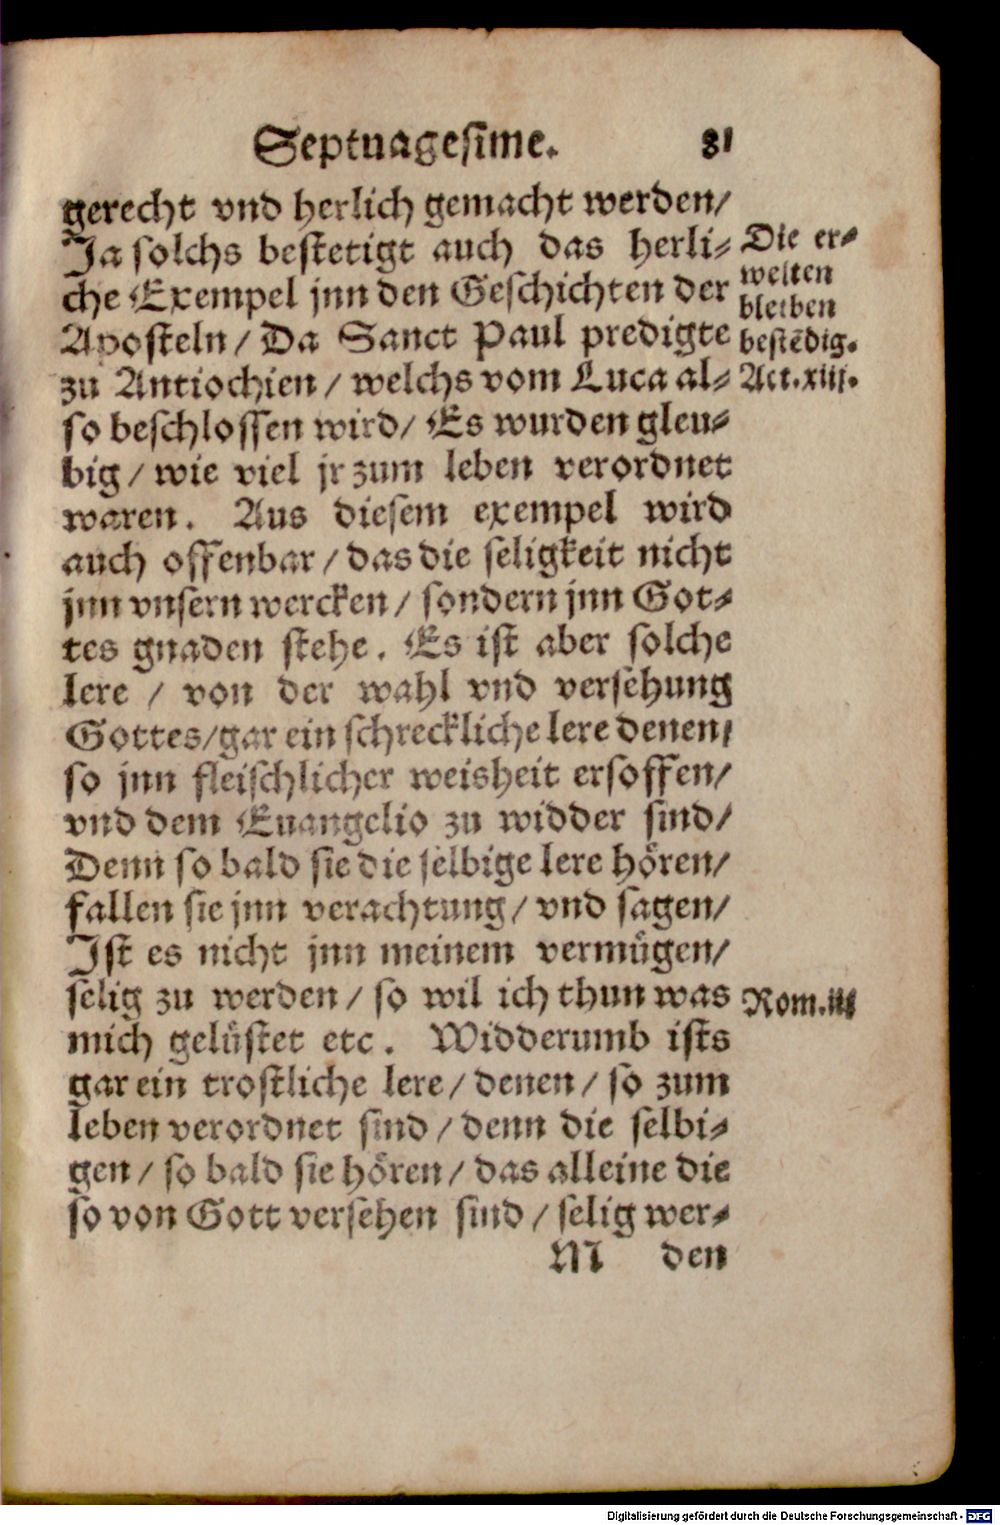 Septuagesime. 81
gerecht vnd herlich gemacht werden/
Ja solchs bestetigt auch das herli-
che Exempel jnn den Geschichten der
Aposteln / Da Sanct Paul predigte
zu Antiochien / welchs vom Luca al-
so beschlossen wird/ Es wurden gleu-
big / wie viel jr zum leben verordnet
waren. Aus diesem exempel wird
auch offenbar / das die seligkeit nicht
jnn vnsern wercken / sondern jnn Got-
tes gnaden stehe. Es ist aber solche
lere / von der wahl vnd versehung
Gottes/gar ein schreckliche lere denen/
so jnn fleischlicher weisheit ersoffen/
vnd dem Euangelio zu widder sind/
Denn so bald sie die selbige lere hören/
fallen sie jnn verachtung / vnd sagen/
Ist es nicht jnn meinem vermügen/
selig zu werden / so wil ich thun was
mich gelüstet etc. Widderumb ists
gar ein trostliche lere / denen / so zum
leben verordnet sind / denn die selbi-
gen / so bald sie hören / das alleine die
so von Gott versehen sind / selig wer-
M den
Die er-
welten
bleiben
bestēdig.
Act.xiii.
Rom.iii
Digitalisierung gefördert durch die Deutsche Forschungsgemeinschaft - DFG